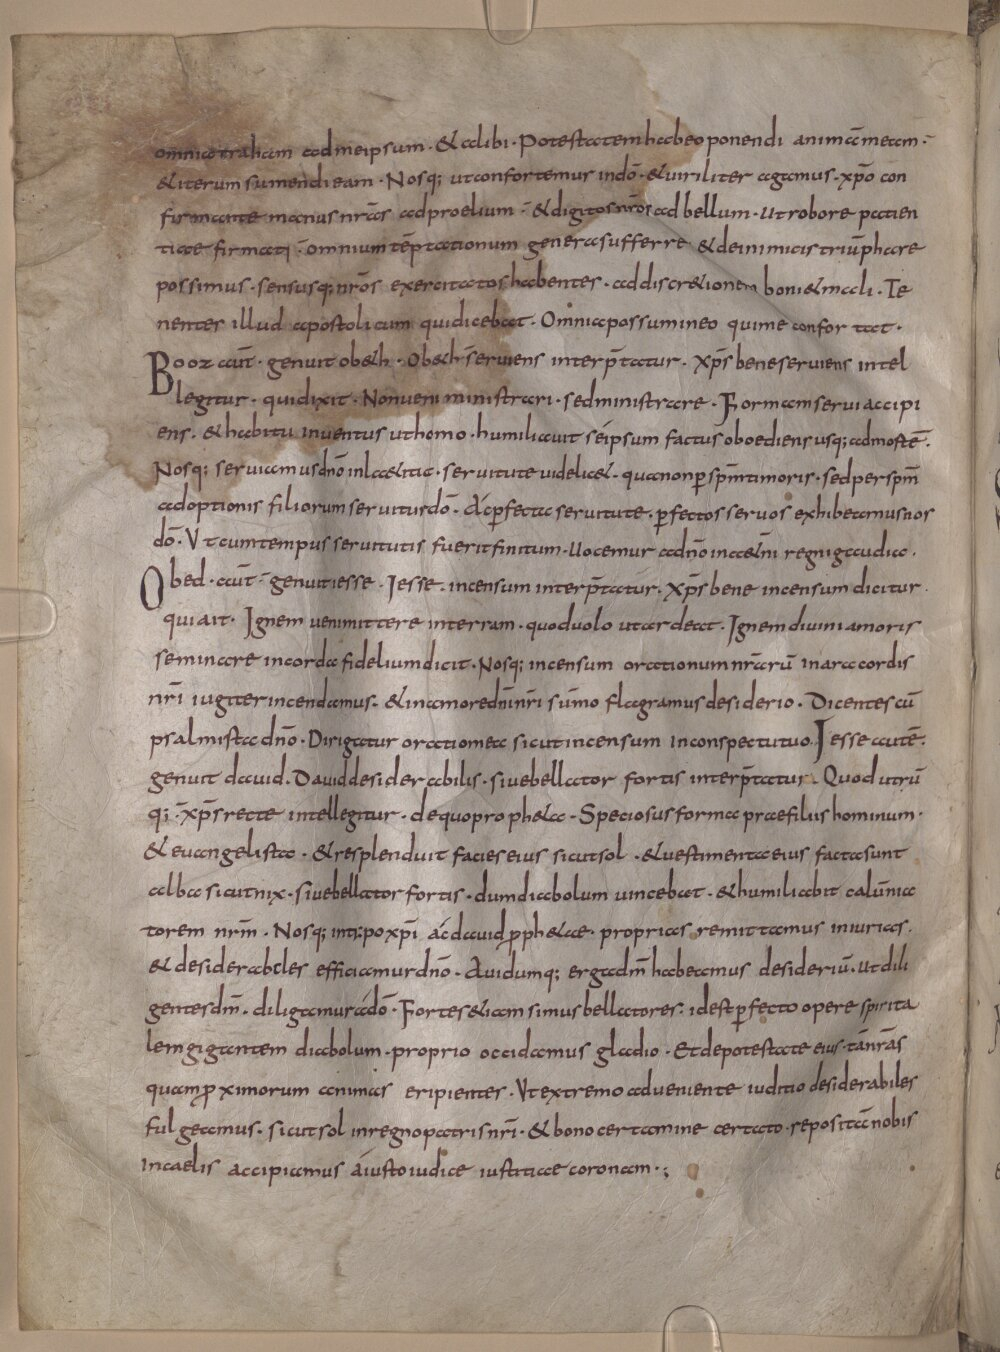 omnia traham ad meipsum · & alibi · Potestatem habeo ponendi animā meam ·
& iterum sumendi eam · Nosq; ut confortemur in dō · & uiriliter agamus · xpō con
firmante manus nrās ad proelium · & digitos nrōs ad bellum · ut robore patien
tiae firmati · omnium tēptationum genera sufferre & de inimicis triūphare
possimus · sensusq; nrōs exercitatos habentes · ad discr&ionem boni & mali · Te
nentes illud apostolicum qui dicebat · Omnia possum in eo qui me confortat ·
Booz aut̄ · genuit ob&h · Ob&h seruiens interp̄tatur · Xp̄s bene seruiens intel
legitur · qui dixit · Non ueni ministrari · sed ministrare · Formam serui accipi
ens · & habitu inuentus ut homo · humiliauit seipsum factus oboediens usq; ad mortē ·
Nosq; seruiamus dnō in la&itia · seruitute uidelic& · qua non p̱ sp̄m timoris · sed per sp̄m
adoptionis filiorum seruitur dō · Ac p̱fecta seruitute · p̱fectos seruos exhibeamus nos
dō · Ut cum tempus seruitutis fuerit finitum · uocemur a dnō in a&̄ni regni gaudia ·
Obed · aut̄ · genuit iesse · Iesse · incensum interp̄tatur · Xp̄s bene incensum dicitur
qui ait · Ignem ueni mittere in terram · quod uolo ut ardeat · Ignem diuini amoris
seminare in corda fidelium dicit · Nosq; incensum orationum nrārū in ara cordis
nrī iugiter incendamus · & in amore dnī nrī sūmo flagramus desiderio · Dicentes cū
psalmista dnō · Dirigatur oratio mea sicut incensum in conspectu tuo. Iesse autē ·
genuit dauid · Dauid desiderabilis · siue bellator fortis interp̄tatur · Quod utrū
q; · xp̄s recte intellegitur · de quo proph&a · Speciosus forma prae filiis hominum ·
& euangelista · & resplenduit facies eius sicut sol · & uestimenta eius facta sunt
alba sicut nix · siue bellator fortis · dum diabolum uincebat · & humiliabit calūnia
torem nrm̄ · Nosq; int̄ipo xpī ac dauid p̱ph&ae · proprias remittamus iniurias ·
& desiderabiles efficiamur dnō · Auidumq; erga dm̄ habeamus desideriū · ut dili
gentes dm̄ · diligamur a dō · Fortes &iam simus bellatores : id est p̱fecto opere spirita
lem gigantem diabolum · proprio occidamus gladio · Et de potestate eius · tā nrās
quam p̱ximorum animas eripientes · Ut extremo adueniente iuditio desiderabiles
fulgeamus · sicut sol in regno patris nrī · & bono certamine certato · repositā nobis
in caelis accipiamus a iusto iudice iustitiae coronam · ;